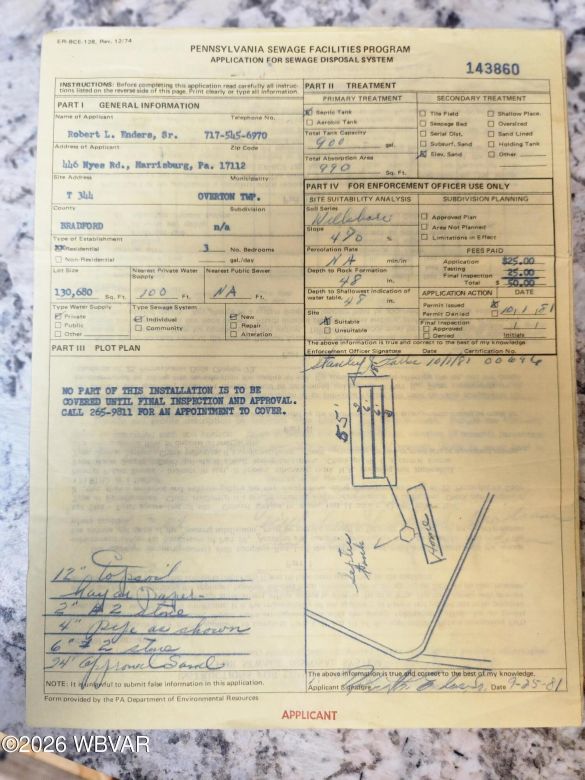 ER-BCE-128, Rev. 12/74
PENNSYLVANIA SEWAGE FACILITIES PROGRAM
APPLICATION FOR SEWAGE DISPOSAL SYSTEM
143860
INSTRUCTIONS: Before completing this application read carefully all instructions listed on the reverse side of this page. Print clearly or type all information.
PART I GENERAL INFORMATION
Name of Applicant Telephone No.
Robert L. Enders, Sr. 717-545-6970
Address of Applicant Zip Code
446 Nyes Rd., Harrisburg, Pa. 17112
Site Address Municipality
T 344 OVERTON TWP.
County Subdivision
BRADFORD n/a
Type of Establishment
Residential 3 No. Bedrooms
Non-Residential gal./day
Lot Size Nearest Private Water Supply Nearest Public Sewer
130,680 Sq. Ft. 100 Ft. NA Ft.
Type Water Supply Type Sewage System
Private Individual New
Public Community Repair
Other Alteration
PART II TREATMENT
PRIMARY TREATMENT SECONDARY TREATMENT
Septic Tank Tile Field Shallow Place.
Aerobic Tank Seepage Bed Oversized
Total Tank Capacity Serial Dist. Sand Lined
900 gal. Subsurf. Sand Holding Tank
Total Absorption Area Elev. Sand Other
990 Sq. Ft.
PART IV FOR ENFORCEMENT OFFICER USE ONLY
SITE SUITABILITY ANALYSIS SUBDIVISION PLANNING
Soil Series Approved Plan
Slope Area Not Planned
% Limitations in Effect
Percolation Rate FEES PAID
NA min/in Application $25.00
Testing
Depth to Rock Formation Final Inspection 25.00
48 in. Total $ 50.00
Depth to Shallowest indication of water table. 48 in. APPLICATION ACTION DATE
Permit Issued 10/1/81
Site Permit Denied
Suitable Final Inspection
Unsuitable Approved
Denied Initials
The above information is true and correct to the best of my knowledge.
Enforcement Officer Signature Date Certification No.
Stanley 10/1/81
PART III PLOT PLAN
NO PART OF THIS INSTALLATION IS TO BE
COVERED UNTIL FINAL INSPECTION AND APPROVAL.
CALL 265-9811 FOR AN APPOINTMENT TO COVER.
55'
Home
septic tank
12" Topsoil
2" # 2 stone
4" pipe as shown
6" # 2 stone
24" approved Sand
The above information is true and correct to the best of my knowledge.
Applicant Signature Date 9-25-81
NOTE: It is unlawful to submit false information in this application.
Form provided by the PA Department of Environmental Resources
APPLICANT
©2026 WBVAR